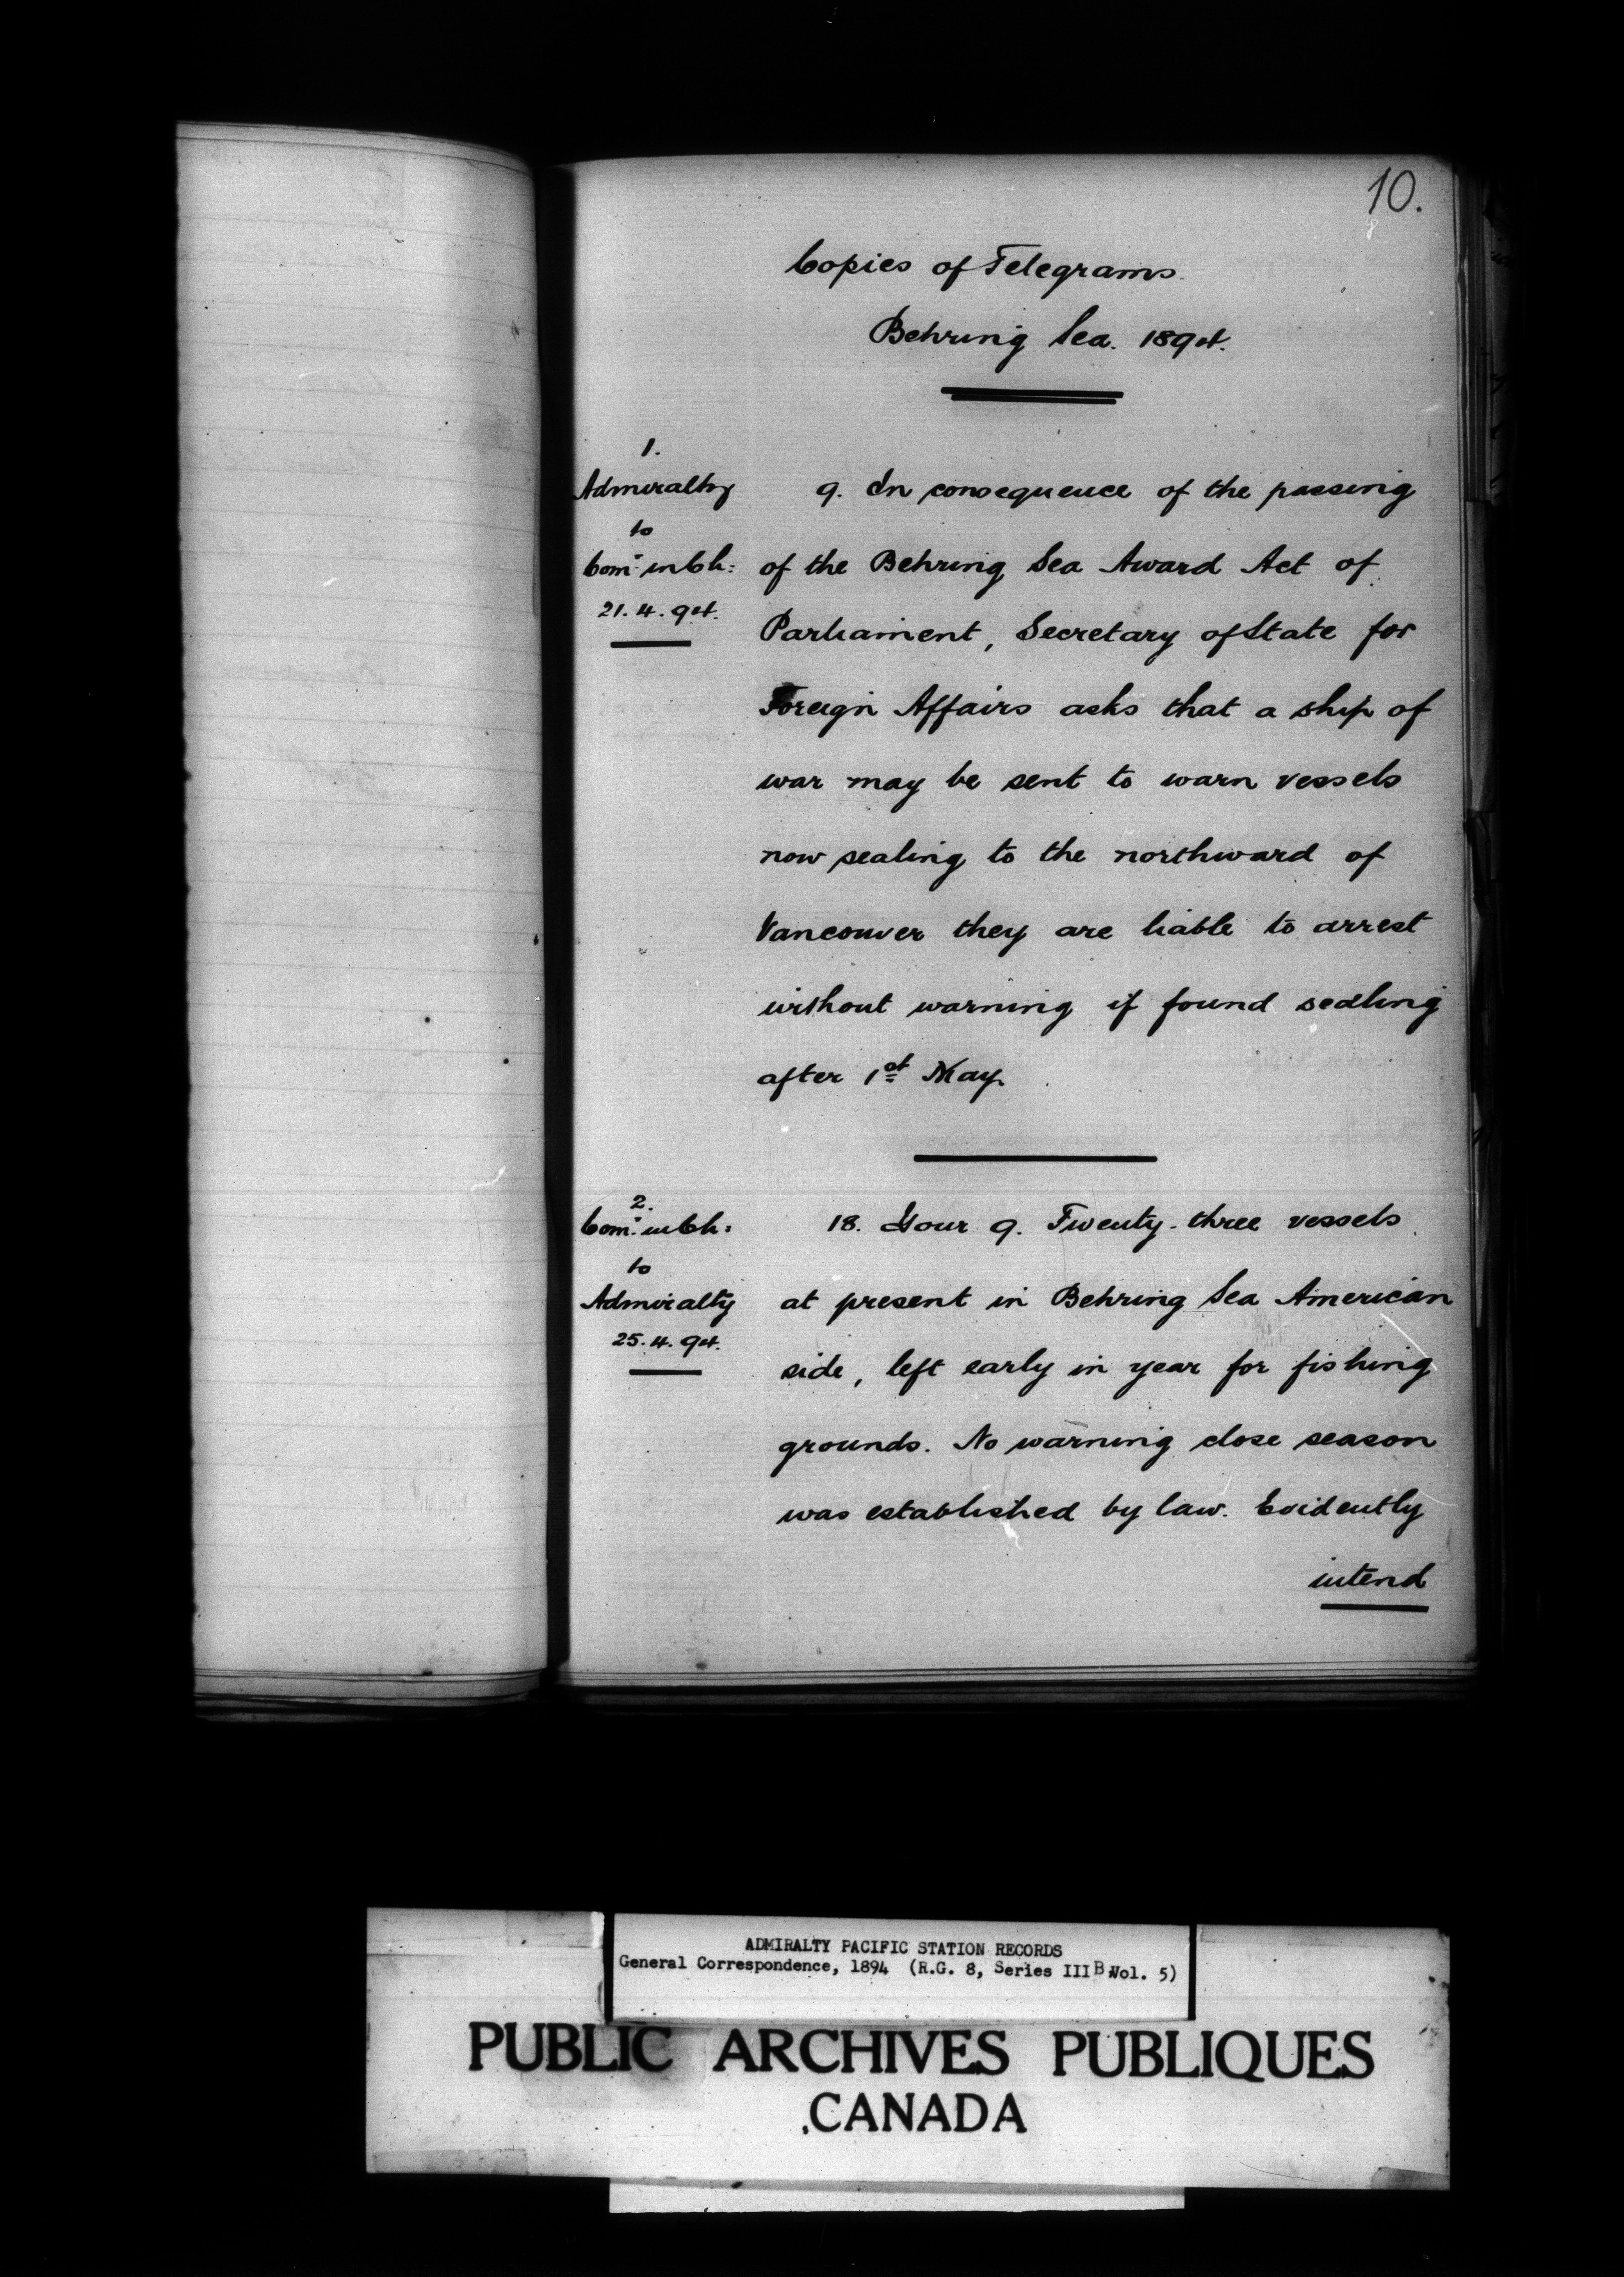 10.
Copies of Telegrams.
Behring Sea. 1894.
1.
Admiralty
to
Comr. in Ch:
21.4.94.
9. In consequence of the passing
of the Behring Sea Award Act of
Parliament, Secretary of State for
Foreign Affairs asks that a ship of
war may be sent to warn vessels
now sealing to the northward of
Vancouver they are liable to arrest
without warning if found sealing
after 1st May.
2.
Comr. in Ch:
to
Admiralty
25.4.94.
18. Your 9. Twenty-three vessels
at present in Behring Sea American
side, left early in year for fishing
grounds. No warning close season
was established by law. Evidently
intend
ADMIRALTY PACIFIC STATION RECORDS
General Correspondence, 1894 (R.G. 8, Series III B Vol. 5)
PUBLIC ARCHIVES PUBLIQUES
CANADA